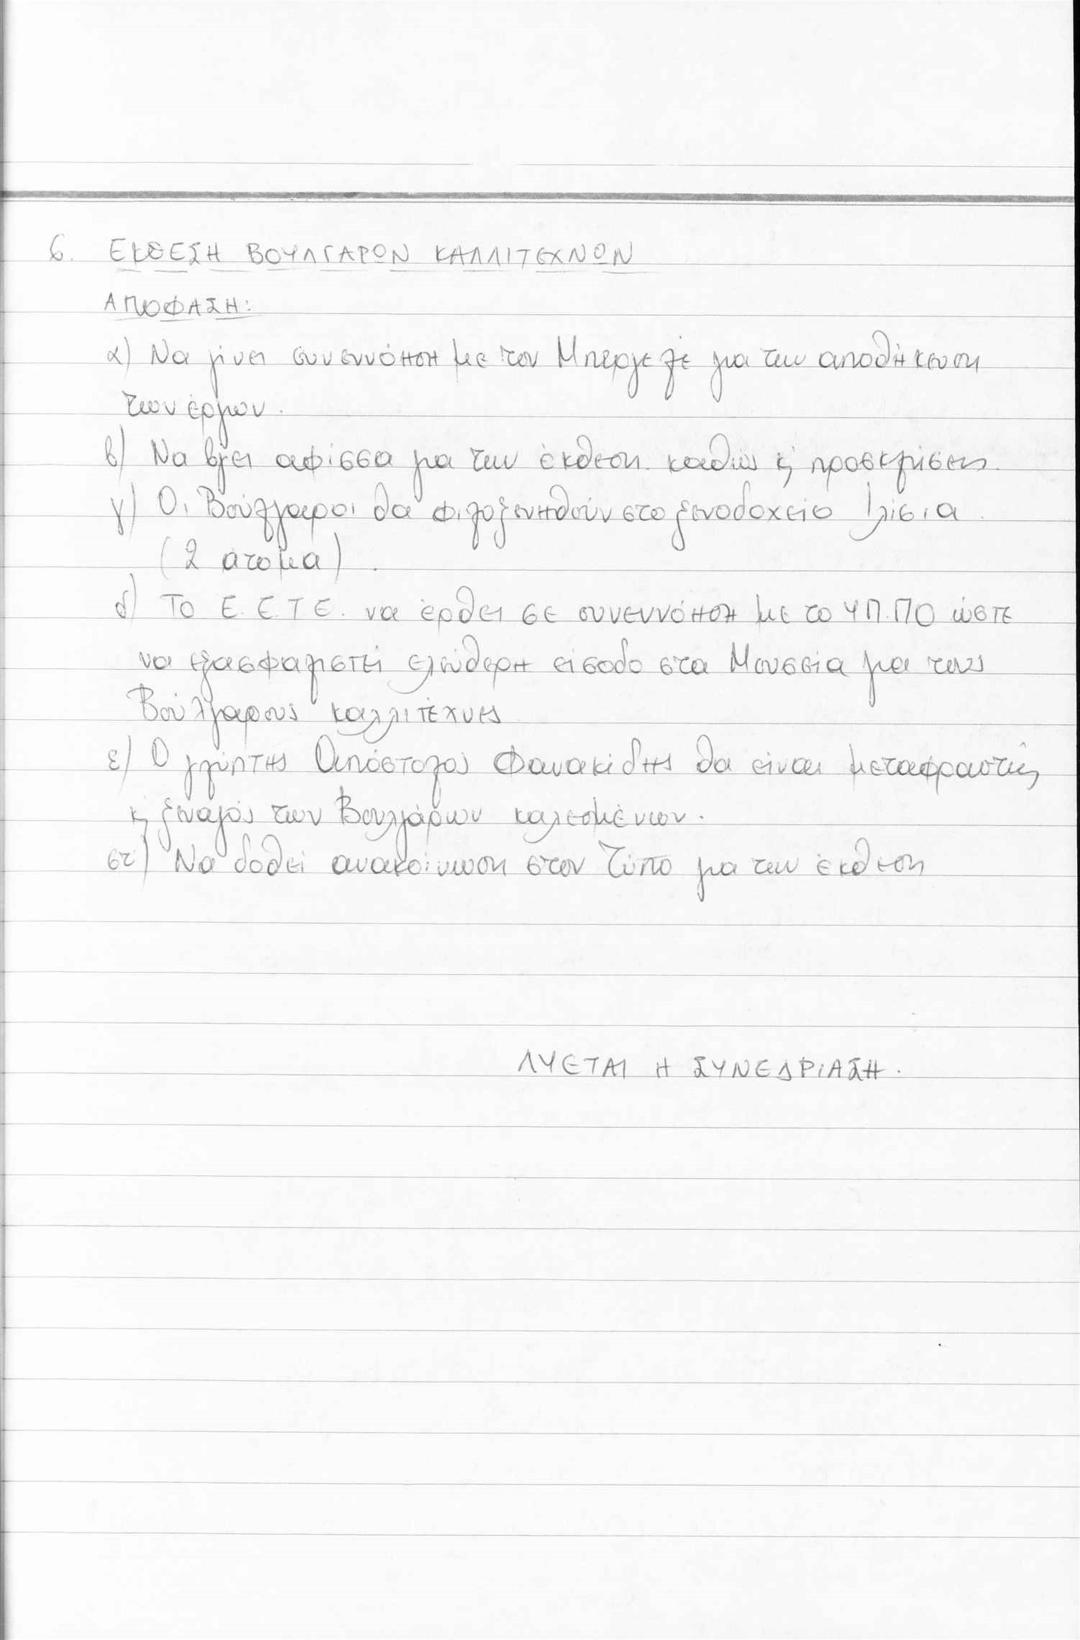 6. ΕΚΘΕΣΗ ΒΟΥΛΓΑΡΩΝ ΚΑΛΛΙΤΕΧΝΩΝ
ΑΠΟΦΑΣΗ:
α) Να γίνει συνεννόηση με τον Μπεργελέ για την αποθήκευση
των έργων.
β) Να βγει αφίσσα για την έκθεση καθώς κ' προσκλήσεις.
γ) Οι Βούλγαροι θα φιλοξενηθούν στο ξενοδοχείο Ιλίσια
(2 άτομα).
δ) Το Ε.Ε.Τ.Ε. να έρθει σε συνεννόηση με το ΥΠ.ΠΟ ώστε
να εξασφαλιστεί ελεύθερη είσοδο στα Μουσεία για τους
Βούλγαρους καλλιτέχνες
ε) Ο γλύπτης Απόστολος Φανακίδης θα είναι μεταφραστής
κ' ξεναγός των Βουλγάρων καλεσμένων.
στ) Να δοθεί ανακοίνωση στον Τύπο για την έκθεση
ΛΥΕΤΑΙ Η ΣΥΝΕΔΡΙΑΣΗ.